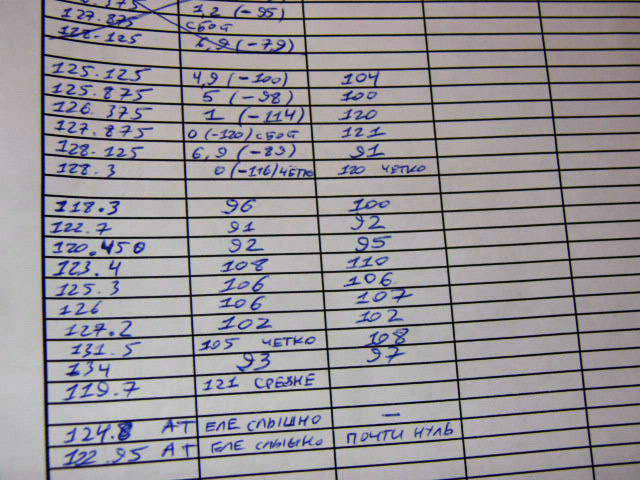 127.875 1,2 (-95)
128.125 СБОЙ
6,9 (-79)
125.125 4,9 (-100) 104
125.875 5 (-98) 100
126.375 1 (-114) 120
127.875 0 (-120) СБОЙ 121
128.125 6,9 (-89) 91
128.3 0 (-116) ЧЕТКО 120 ЧЕТКО
118.3 96 100
122.7 91 92
120.450 92 95
123.4 108 110
125.3 106 106
126 106 107
127.2 102 102
131.5 105 ЧЕТКО 108
134 93 97
119.7 121 СРЕДНЕ
124.8 АТ ЕЛЕ СЛЫШНО —
122.95 АТ ЕЛЕ СЛЫШНО ПОЧТИ НУЛЬ